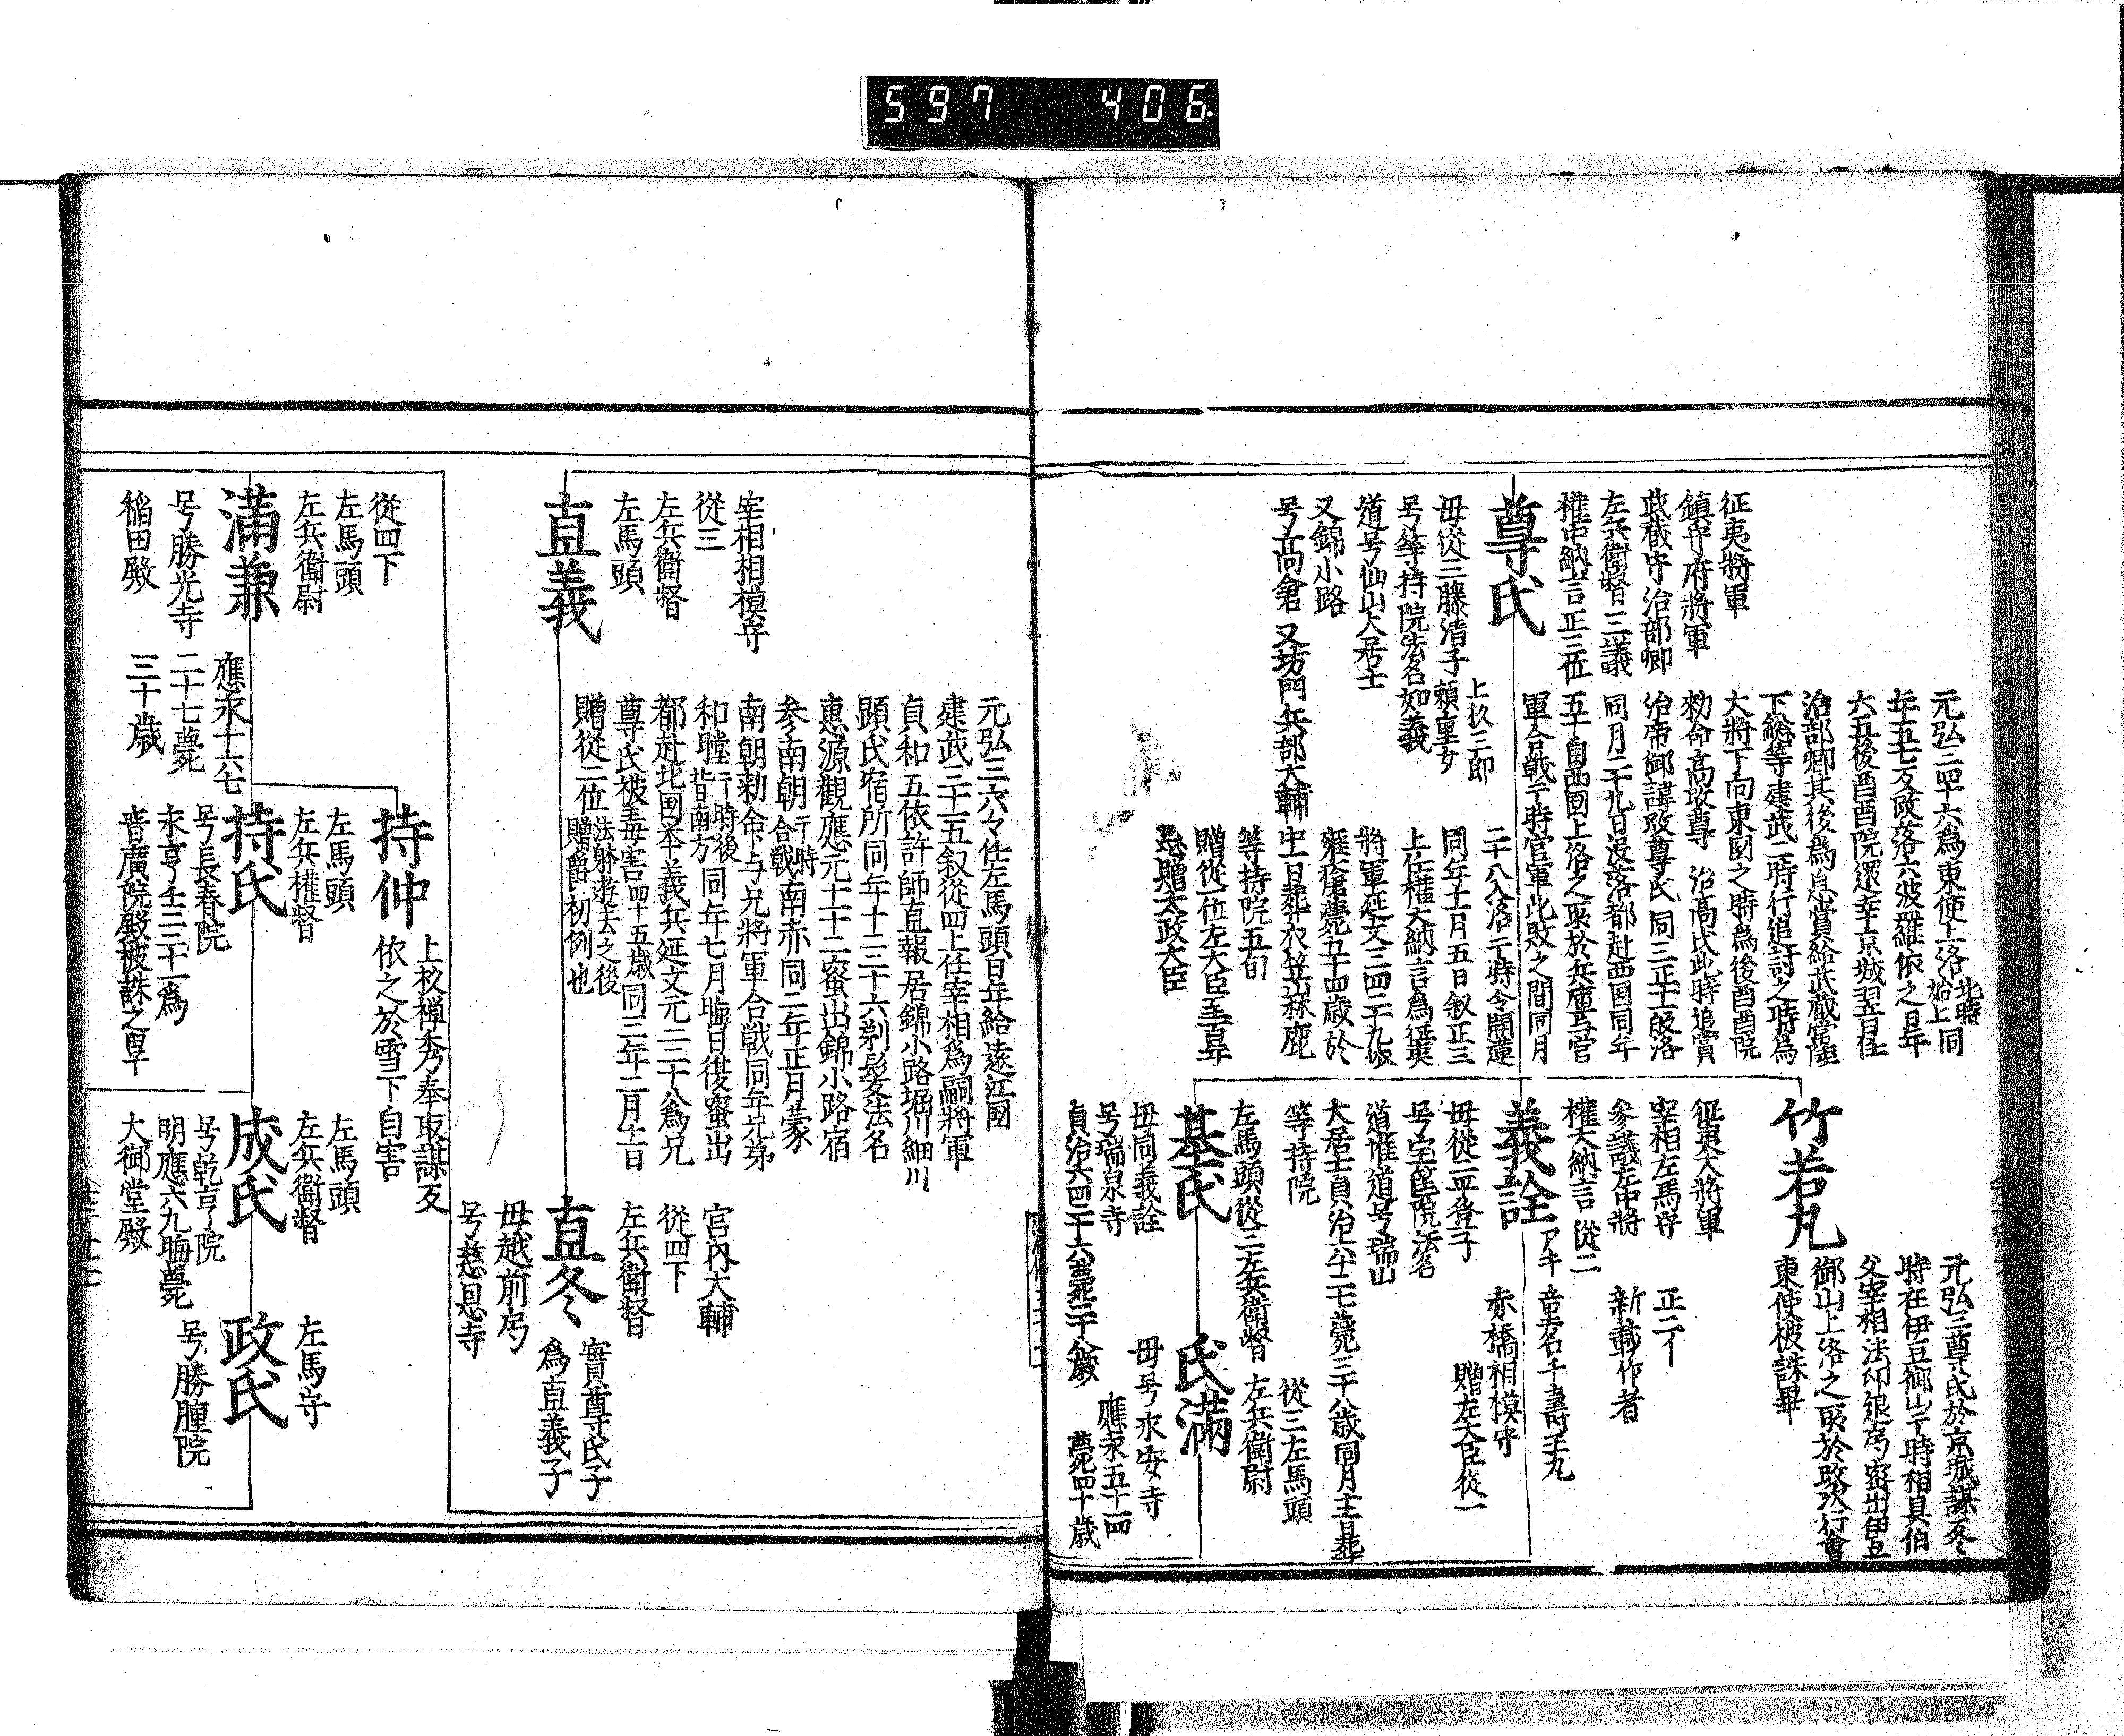 597 406
征夷將軍
鎮守府將軍
武蔵守治部卿
左兵衛督 三議
權中納言正三位
尊氏
母從三藤清子
上杉三郎
頼重女
号等持院法名如義
道号仙山大居士
又錦小路
号高倉 又坊門兵部大輔
元弘三四十六爲東使上洛
年五七攻落六波羅依之同年
六五後酉酉院還幸京城翌日任
治部卿其後爲息賞給武蔵常陸
下総等建武二時行追討之時爲
大將下向東國之時爲後酉酉院
勅命高改尊
治帝御諱改尊氏同三正十一没洛
同月二十九日没落都赴西國同年
五十自西國上洛之砌於兵庫与官
軍合戦于時官軍敗之間同月
二十八入洛
同年十一月五日叙正三
上任權大納言爲征夷
將軍延文三四二十九
薨五十四歳於
等持院五旬
贈從一位左大臣
贈太政大臣
竹若丸
元弘三尊氏於京城謀反
時在伊豆御山于時相具伯
父宰相法印
御山上洛之砌於
東使被誅畢
征夷大將軍
宰相左馬守
參議左中將
權大納言 從二
正二
新載作者
義詮
アキ
童名千壽王丸
赤橋相模守
贈左大臣從一
母從二平登子
号宝筐院法名
道惟道号瑞山
大居士貞治六十二七薨三十八歳同月十二日葬
等持院
左馬頭從三左兵衛督
基氏
母同義詮
号瑞泉寺
貞治六四二十六薨二十八歳
從三左馬頭
左兵衛尉
氏滿
母号永安寺
應永五十一四
薨四十歳
宰相相模守
從三
左兵衛督
左馬頭
直義
元弘三六々任左馬頭同年給遠江國
建武三十五叙從四上任宰相爲嗣將軍
貞和五依許師直報居錦小路堀川細川
顕氏宿所同年十二二十六剃髪法名
惠源觀應元十十二蜜出錦小路宿
參南朝
于時
合戦
南亦同二年正月蒙
南朝勅命与兄將軍合戦同年兄弟
和睦
于時後
皆南方
同年七月晦日復蜜出
都赴北国卒義兵延文元二二十八爲兄
尊氏被毒害
四十五歳
同三年二月十一日
贈從二位
法躰逝去之後
贈爵初例也
宮内大輔
從四下
左兵衛督
直冬
實尊氏子
爲直義子
母越前局
号慈恩寺
從四下
左馬頭
左兵衛尉
滿兼
号勝光寺
稲田殿
應永十六七
二十七薨
三十歳
持仲
上杉禪秀奉取謀反
依之於雪下自害
左馬頭
左兵權督
持氏
号長春院
永亨十二二十一爲
普廣院殿被誅之畢
左馬頭
左兵衛督
成氏
号乾亨院
明應六九晦薨
大御堂殿
左馬守
政氏
号勝膧院